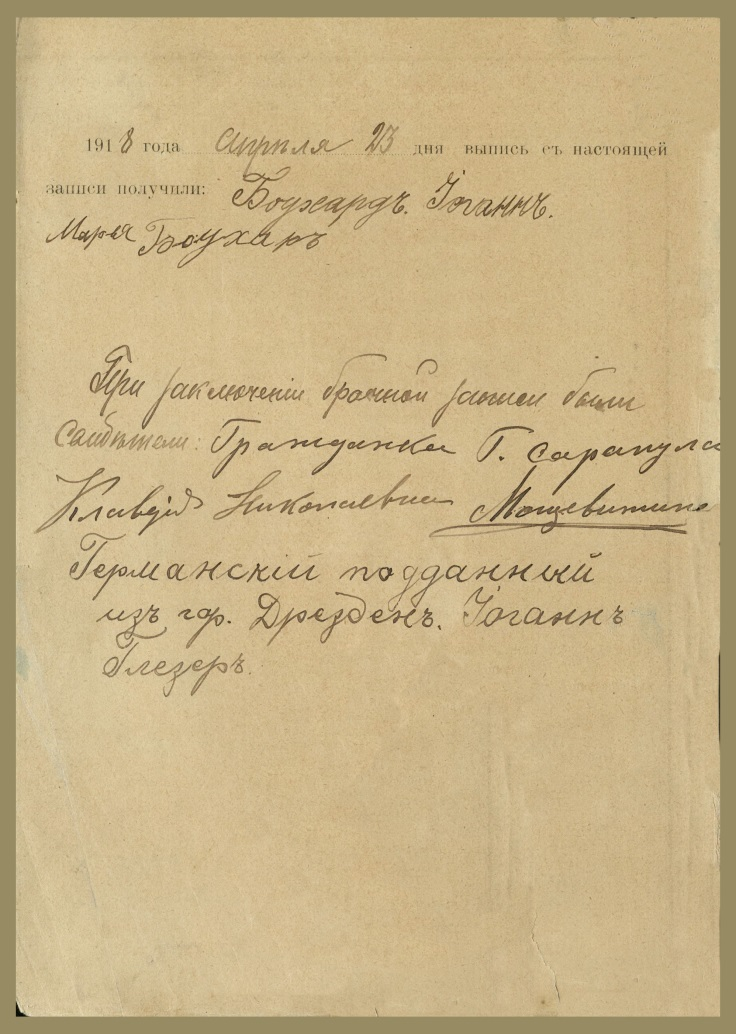 1918 года Апреля 23 дня выпись съ настоящей
записи получили: Боухардъ. Іоганнъ.
Марья Боухаръ
При заключеніи брачной записи были
Свидѣтели: Гражданка Г. Сарапула
Клавдія Николаевна
Германскій подданный
изъ гор. Дрезденъ. Іоганнъ
Глезеръ.